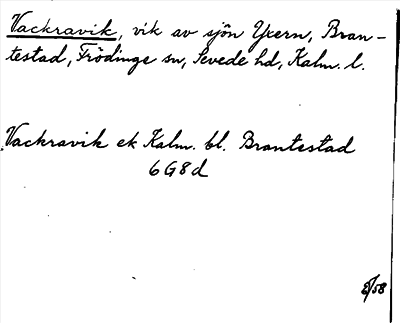 Vackravik, vik av sjön Yxern, Bran-
testad, Frödinge sn, Sevede hd, Kalm. l.
Vackravik ek Kalm. bl. Brantestad
6G8d
8/58